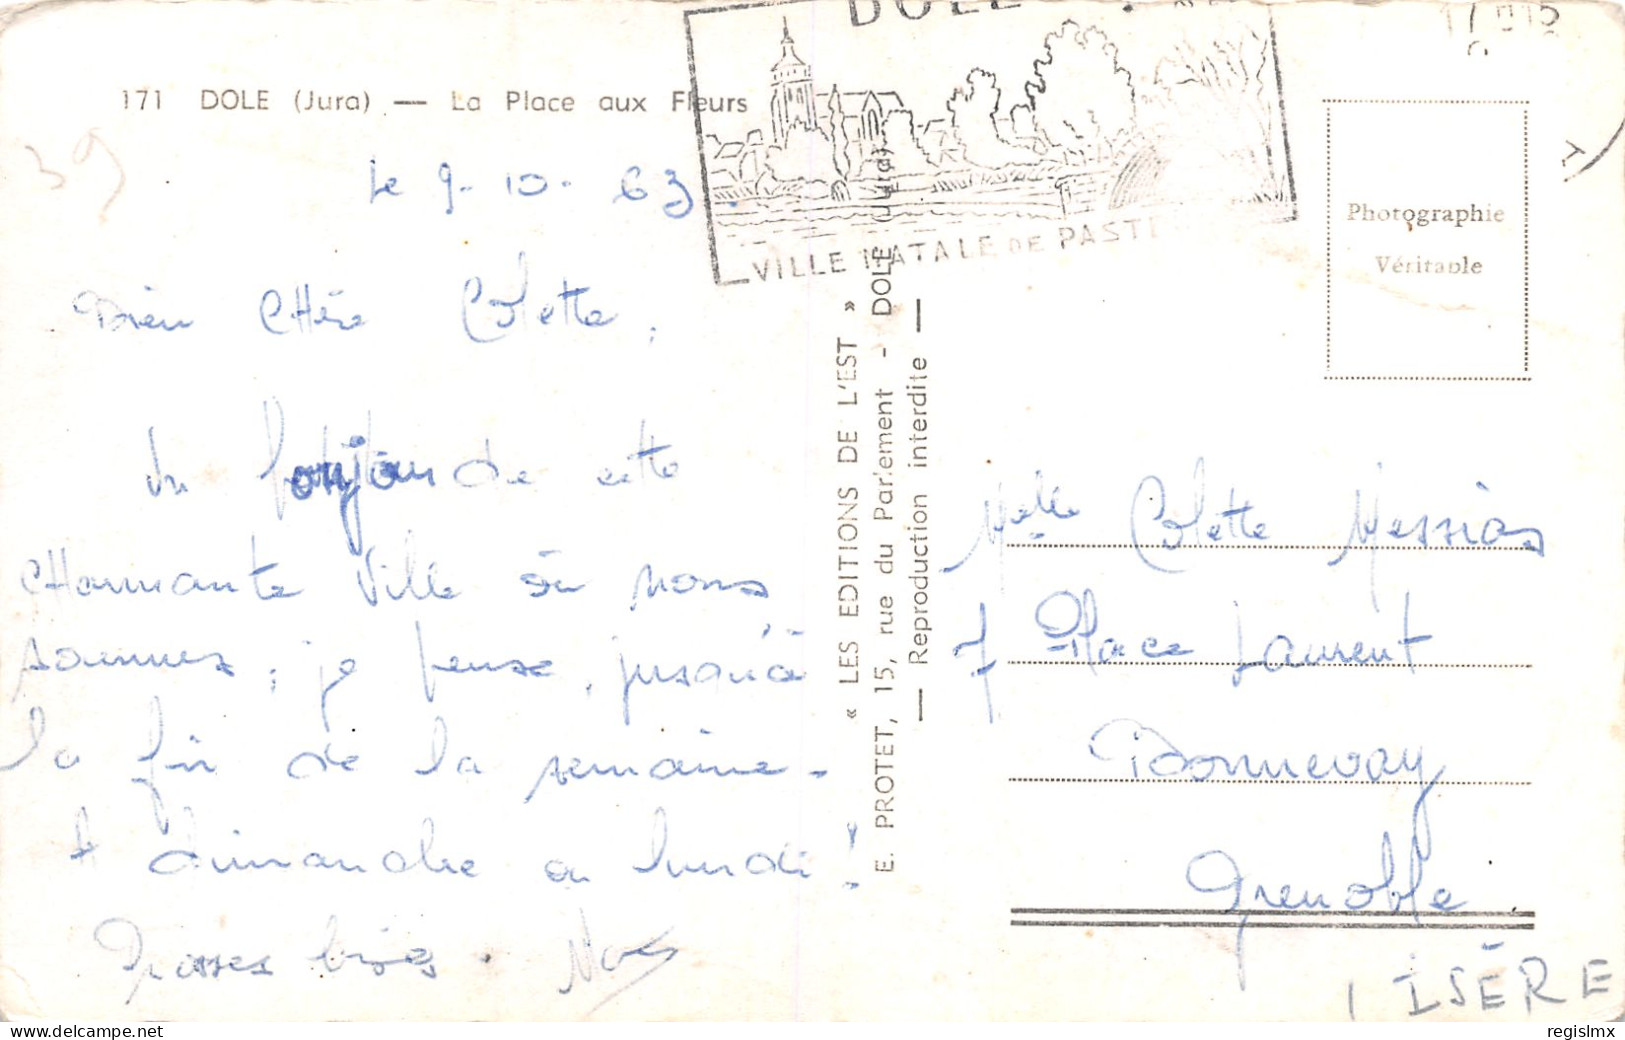 DOLE
171 DOLE (Jura) — La Place aux Fleurs
39
Le 9-10-63.
VILLE NATALE DE PAST
Bien Chère Colette,
Un bonjour de cette
charmante ville où nous
sommes, je pense, jusqu'à
la fin de la semaine.
A dimanche ou lundi !
Grosses bises.
« LES EDITIONS DE L'EST »
E. PROTET, 15, rue du Parlement - DOLE (Jura)
— Reproduction interdite —
Photographie
Véritable
Melle Colette Messias
7 Place Laurent
Bonnevay
Grenoble
ISÈRE
regislmx